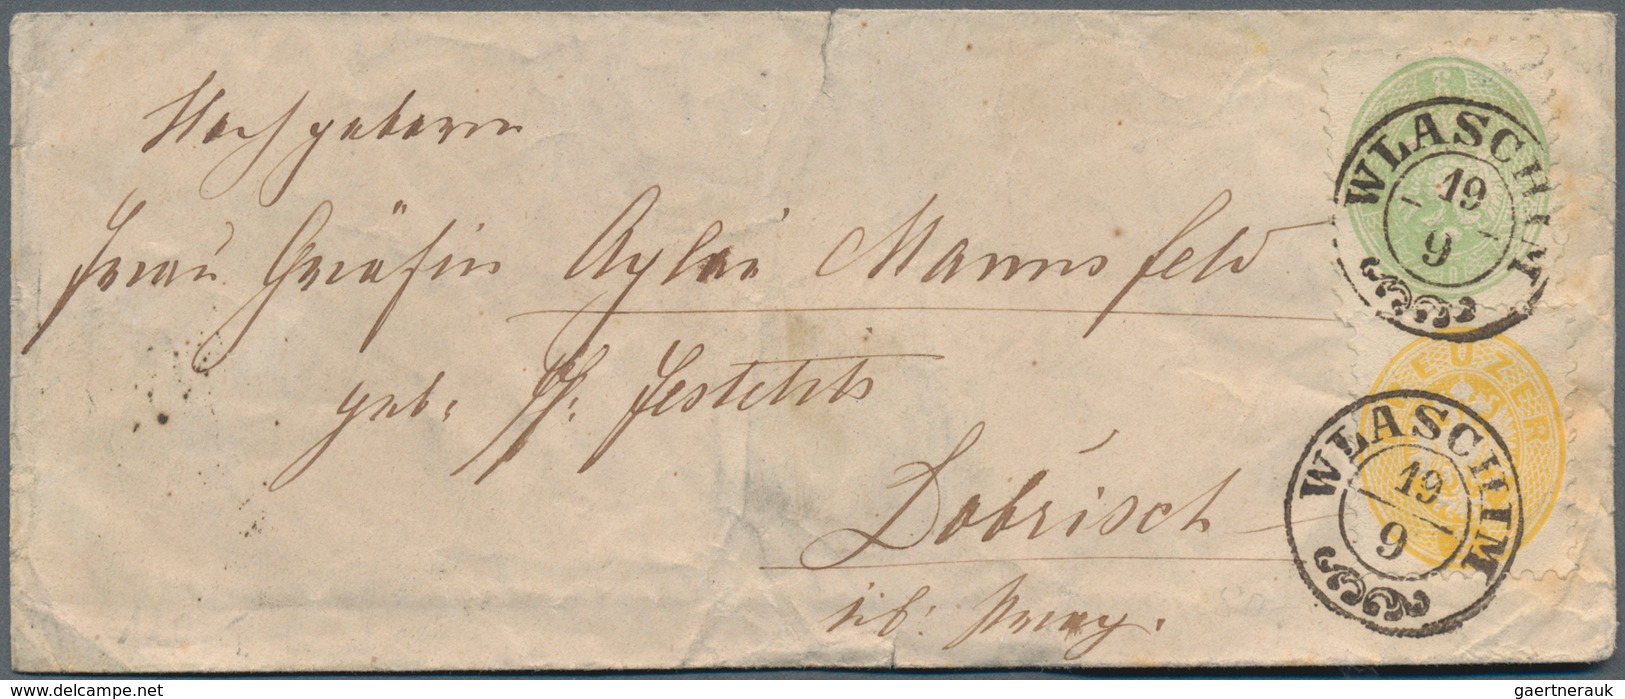 Hochgeboren
Frau Gräfin Aglaë Mannsfeld
geb. Festetits
Dobrisch
üb: Prag.
WLASCHIM
19
9
EUZER
WLASCHIM
19
9
www.delcampe.net
gaertnerauk